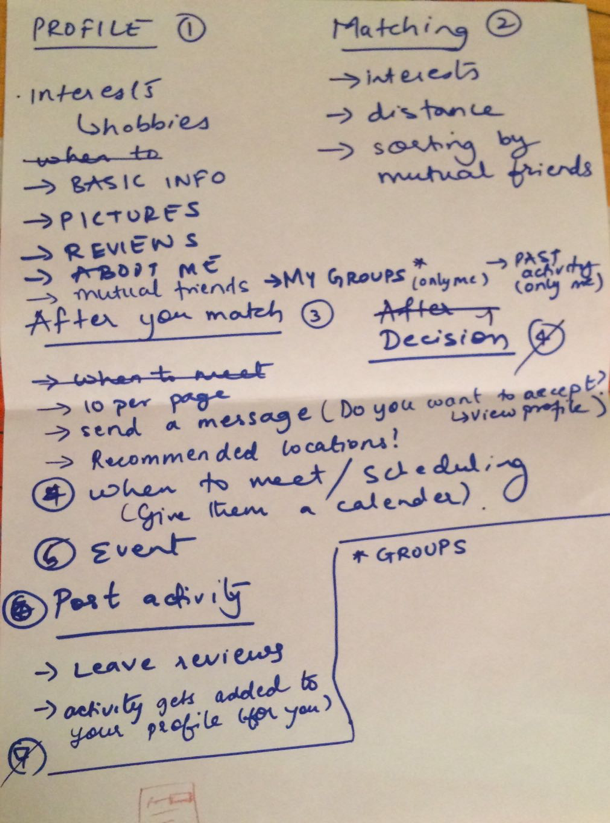 PROFILE ①
· Interests
↳hobbies
when to
→ BASIC INFO
→ PICTURES
→ REVIEWS
→ ABOUT ME
→ mutual friends → MY GROUPS * (only me) → PAST activity (only me)
Matching ②
→ interests
→ distance
→ sorting by
mutual friends
After you match ③
→ when to meet
→ 10 per page
→ send a message (Do you want to accept?
↳view profile)
→ Recommended locations?
After
Decision ④
④ when to meet / scheduling
(Give them a calender).
⑤ Event
⑥ Post activity
→ Leave reviews
→ activity gets added to
your profile (for you)
⑦
* GROUPS